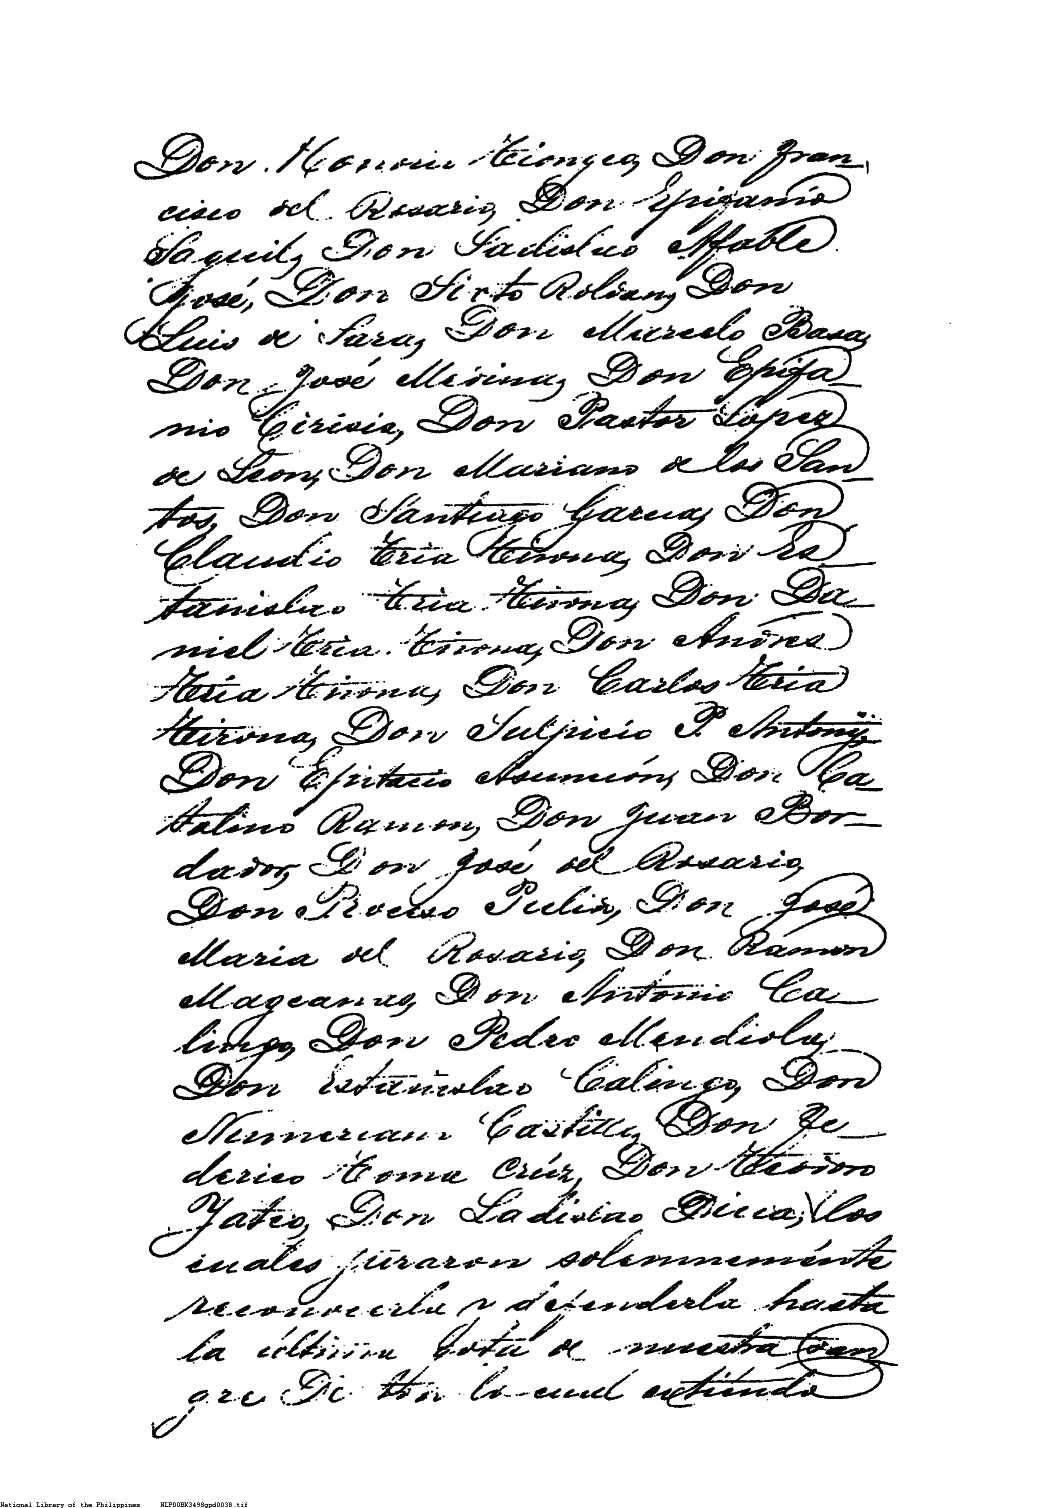 Don Honorio Tiongco, Don Fran_
cisco del Rosario, Don Epifanio
Saguil, Don Ladislao Afable
José, Don Sixto Roldan, Don
Luis de Lara, Don Marcelo Basa,
Don José Medina, Don Epifa_
nio Crisia, Don Pastor Lopez
de Leon, Don Mariano de los San_
tos, Don Santiago Garcia, Don
Claudio Tria Tirona, Don Es_
tanislao Tria Tirona, Don Da_
niel Tria Tirona, Don Andres
Tria Tirona, Don Carlos Tria
Tirona, Don Sulpicio P. Antony,
Don Epitacio Asunción, Don Ca_
talino Ramon, Don Juan Bor_
dador, Don José del Rosario,
Don Proceso Pulido, Don José
Maria del Rosario, Don Ramon
Magcamas, Don Antonio Ca_
lingo, Don Pedro Mendiola,
Don Estanislao Calingo, Don
Numeriano Castillo, Don Fe_
derico Toma Cruz, Don Teodoro
Yatco, Don Ladislao Diwa, los
cuales juraron solemneménte
reconocerla y defenderla hasta
la última gota de nuestra san_
gre De todo lo cual extiendo